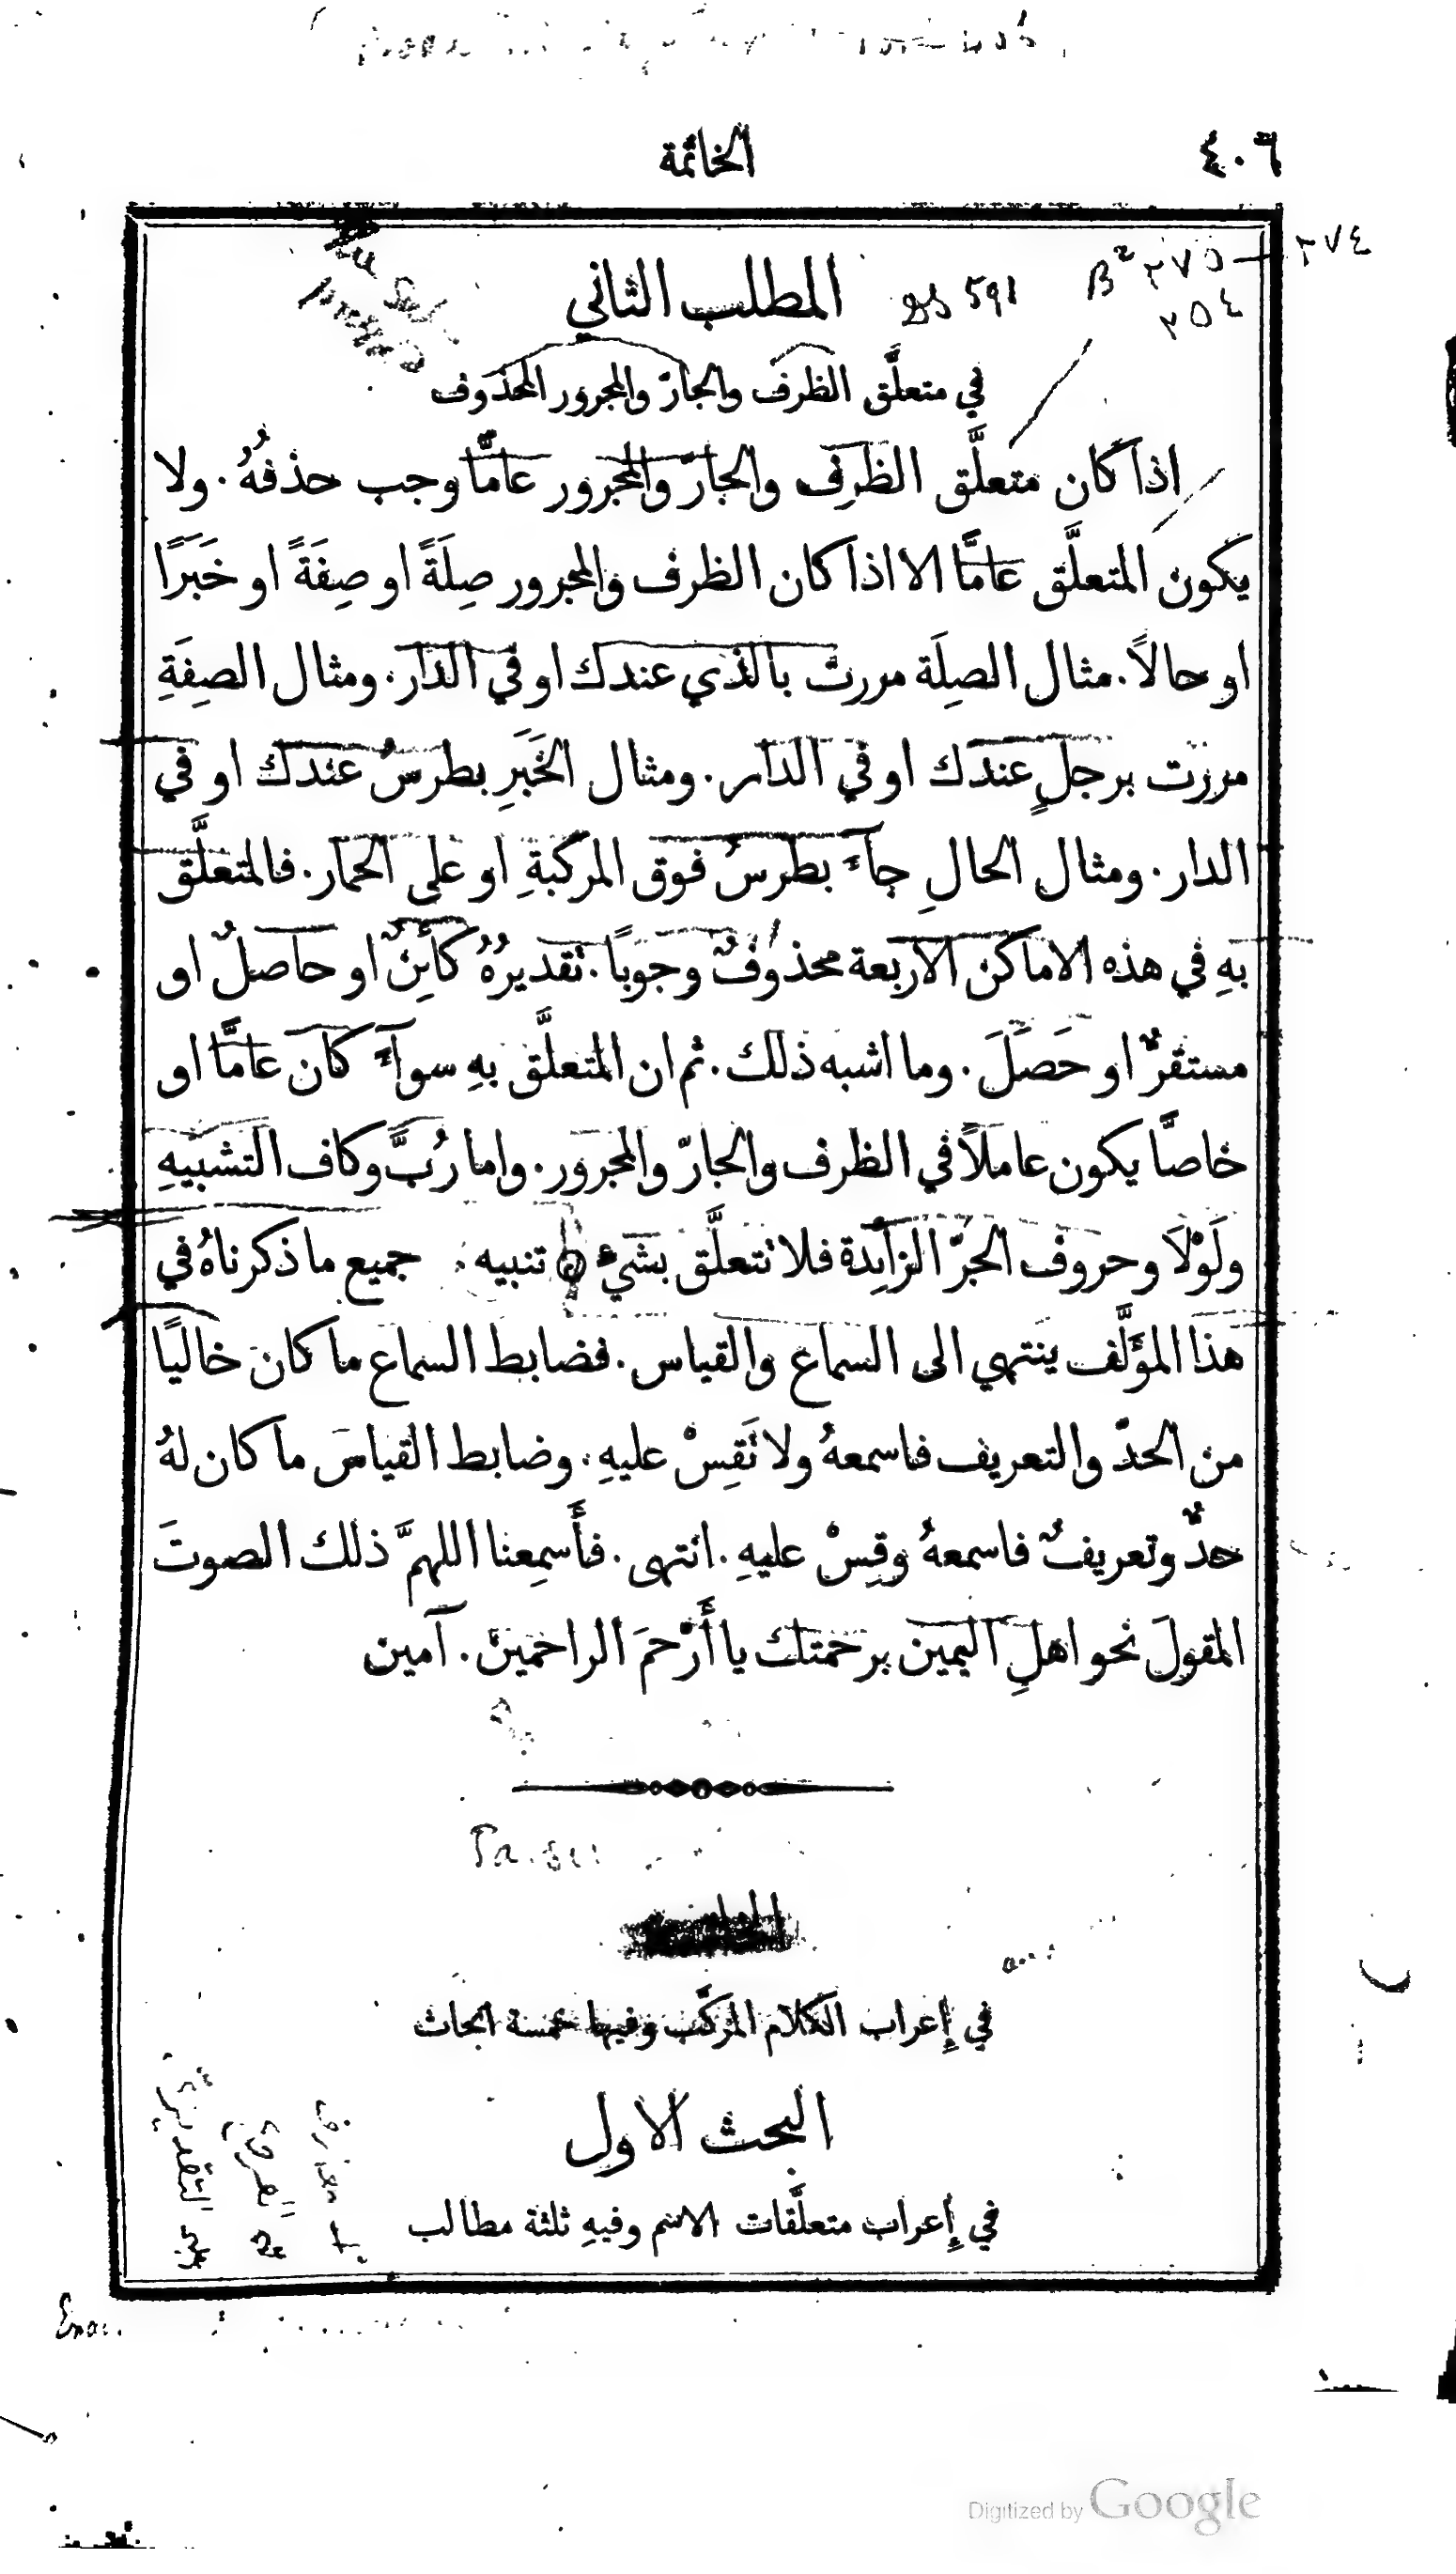 ٤٠٦
الخاتمة
٢٧٤
β² ٢٧٥
٢٥٤
591
المطلب الثاني
في متعلَّق الظرف والجارّ والمجرور المحذوف
اذا كان متعلَّق الظرف والجارّ والمجرور عامًّا وجب حذفهُ . ولا
يكون المتعلَّق عامًّا الا اذا كان الظرف والمجرور صِلَةً او صِفَةً او خَبَرًا
او حالاً . مثال الصِلَة مررت بالذي عندك او في الدار . ومثال الصِفَةِ
مررت برجلٍ عندك او في الدار . ومثال الخَبَرِ بطرسُ عندك او في
الدار . ومثال الحالِ جآءَ بطرسُ فوق المركبةِ او على الحمار . فالمتعلَّق
بهِ في هذه الاماكن الاربعة محذوفٌ وجوبًا . تقديرُهُ كائنٌ او حاصلٌ او
مستقرٌّ او حَصَلَ . وما اشبه ذلك . ثم ان المتعلَّق بهِ سوآءٌ كان عامًّا او
خاصًّا يكون عاملاً في الظرف والجارّ والمجرور . واما رُبَّ وكاف التشبيهِ
ولَوْلَا وحروف الجرّ الزائِدة فلا تتعلَّق بشيءٍ تنبيه . جميع ما ذكرناهُ في
هذا المؤَلَّف ينتهي الى السماع والقياس . فضابط السماع ما كان خاليًا
من الحدّ والتعريف فاسمعهُ ولا تَقِسْ عليهِ . وضابط القياس ما كان لهُ
حدٌّ وتعريفٌ فاسمعهُ وقِسْ عليهِ . انتهى . فأَسمِعنا اللهمَّ ذلك الصوتَ
المقولَ نحو اهلِ اليمين برحمتك يا أَرْحمَ الراحمين . آمين
في إِعراب الكلام المركَّب وفيها خمسة ابحاث
البحث الاول
في إِعراب متعلَّقات الاسم وفيهِ ثلثة مطالب
Digitized by Google